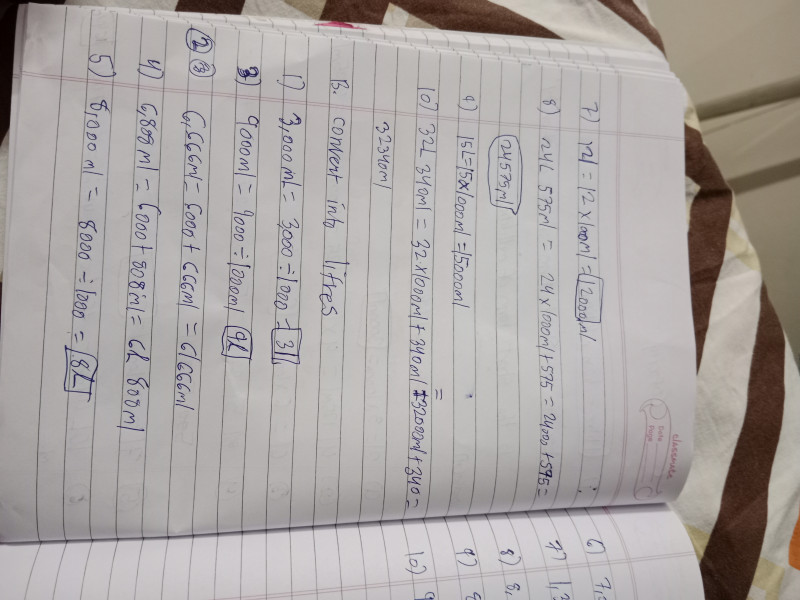 classmate
Date
Page
7) 12L = 12 x 1000ml = 12000ml
8) 24L 575ml = 24 x 1000ml + 575 = 24000 + 575 =
24575ml
9) 15L = 15 x 1000ml = 15000ml
10) 32L 340ml = 32 x 1000ml + 340ml = 32000ml + 340 =
32340ml
B. convent into litres
1) 3,000ml = 3000 ÷ 1000 = 3L
3) 9000ml = 9000 ÷ 1000ml 9L
2) 3) 6,666ml = 6000 + 666ml = 6L 666ml
4) 6,808ml = 6000 + 808ml = 6L 808ml
5) 8,000ml = 8000 ÷ 1000 = 8L
6) 7,
7) 1,2
8) 8,
9)
10) 9